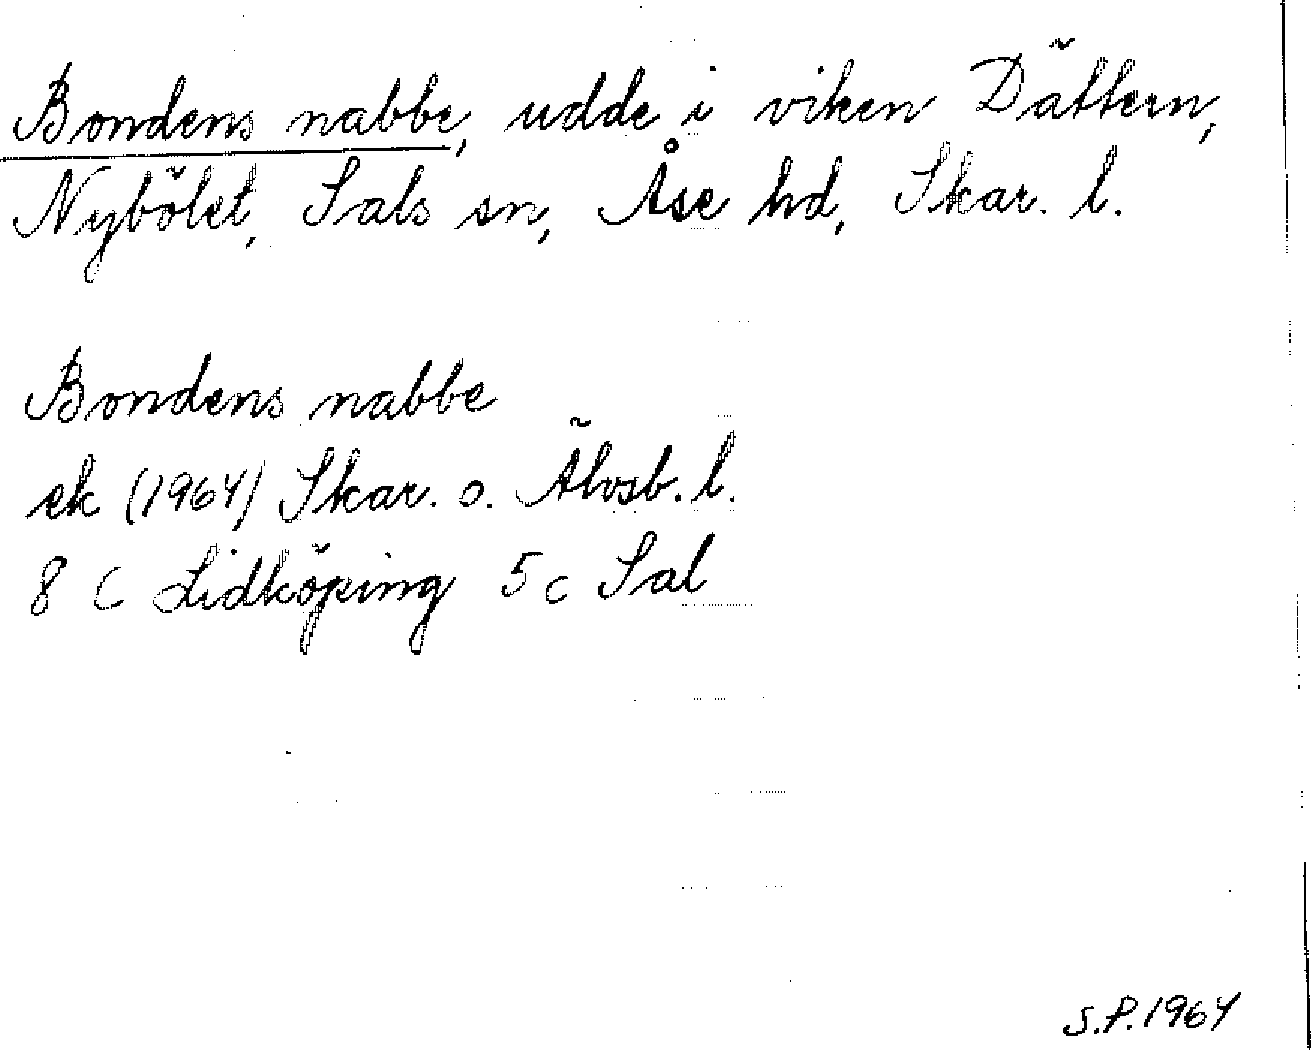 Bondens nabbe, udde i viken Dättern,
Nybölet, Sals sn, Åse hd, Skar. l.
Bondens nabbe
ek (1964) Skar. o. Älvsb. l.
8 C Lidköping 5c Sal
S.P. 1964